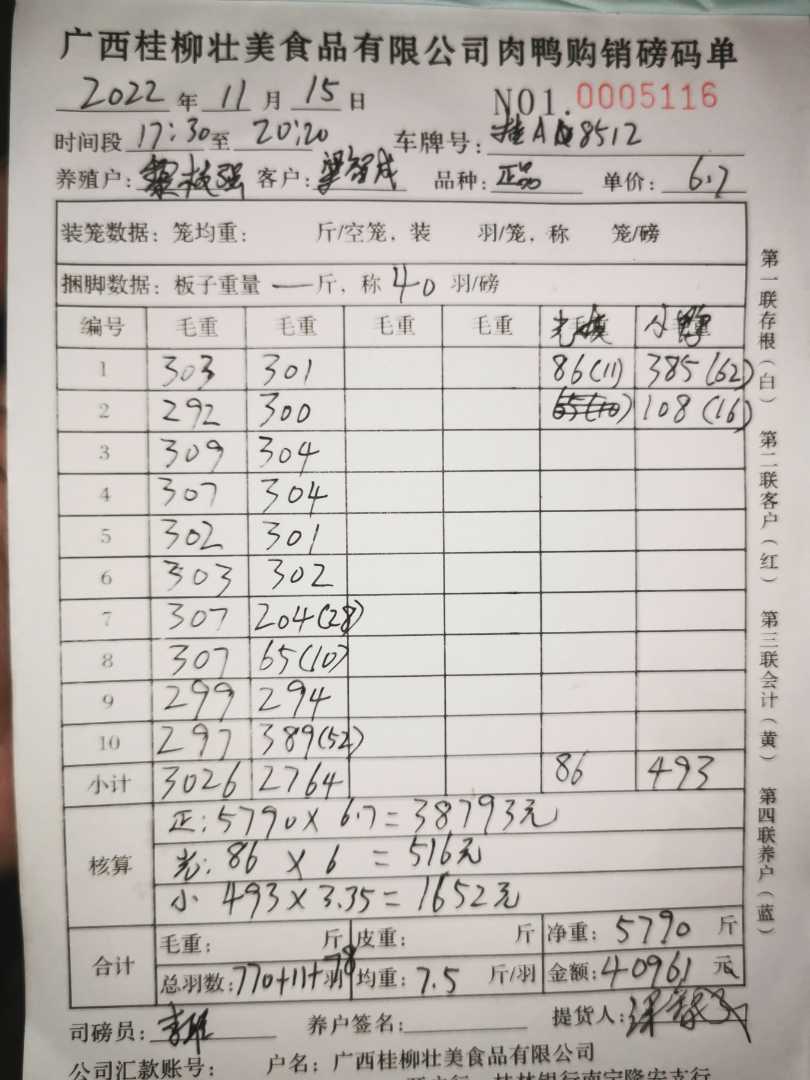 广西桂柳壮美食品有限公司肉鸭购销磅码单
2022 年 11 月 15 日 NO1.0005116
时间段 17:30 至 20:20 车牌号: 桂A 8512
养殖户: 强 客户: 梁智成 品种: 正品 单价: 6.7
装笼数据: 笼均重: 斤/空笼, 装 羽/笼, 称 笼/磅
捆脚数据: 板子重量 — 斤, 称 40 羽/磅
编号 毛重 毛重 毛重 毛重 小
1 303 301 86(11) 385(62)
2 292 300 108(16)
3 309 304
4 307 304
5 302 301
6 303 302
7 307 204(28)
8 307 65(10)
9 299 294
10 297 389(52)
小计 3026 2764 86 493
核算 正:5790× 6.7=38793元
光: 86 × 6 = 516元
小 493×3.35=1652元
合计 毛重: 斤 皮重: 斤 净重: 5790 斤
总羽数:770+11+78羽 均重: 7.5 斤/羽 金额:40961 元
司磅员: 养户签名: 提货人:
公司汇款账号: 户名: 广西桂柳壮美食品有限公司
桂林银行南宁隆安支行
第一联存根(白)
第二联客户(红)
第三联会计(黄)
第四联养户(蓝)